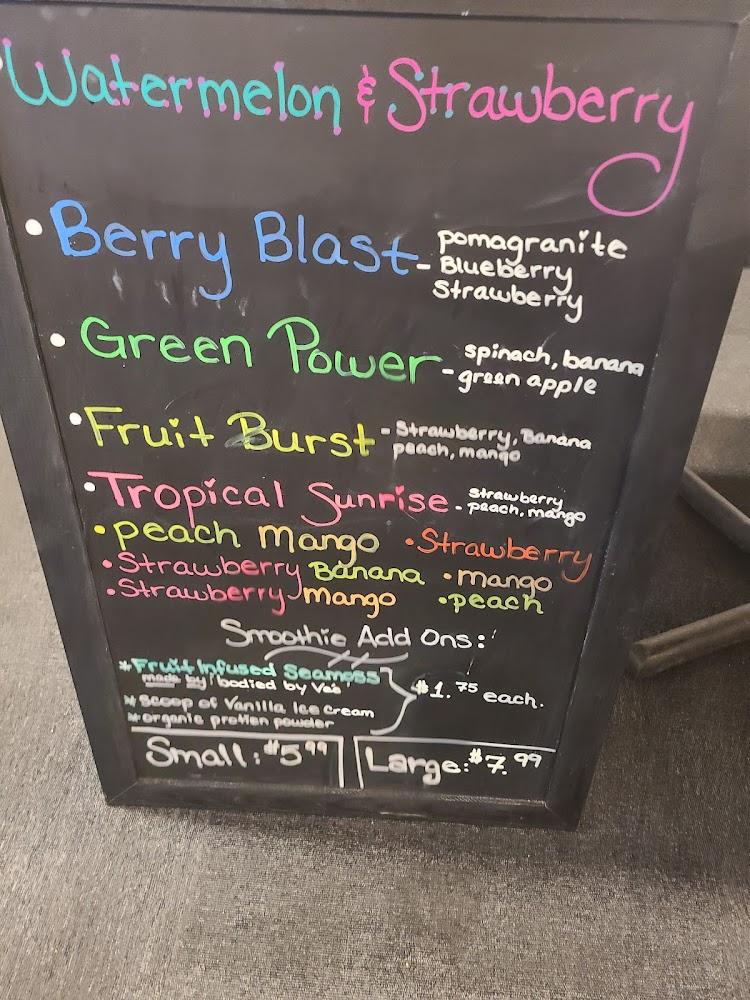 Watermelon & Strawberry
• Berry Blast - pomagranite
Blueberry
Strawberry
• Green Power - spinach, banana
green apple
• Fruit Burst - Strawberry, Banana
peach, mango
• Tropical Sunrise - strawberry
peach, mango
• peach mango • Strawberry
• Strawberry Banana • mango
• Strawberry mango • peach
Smoothie Add Ons:
* Fruit Infused Seamoss
made by / bodied by Vas
* scoop of Vanilla Ice cream
* organic protien powder
$1.75 each.
Small: $5.99 Large: $7.99